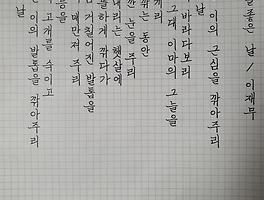 좋은 날 / 이재무
이의 근심을 깎아주리
날
바라다보리
그대 이마의 그늘을
깎는 동안
눈을 주리
내리는 햇살에
하게 깎다가
거칠어진 발톱을
매만져 주리
고개를 숙이고
이의 발톱을 깎아주리
날